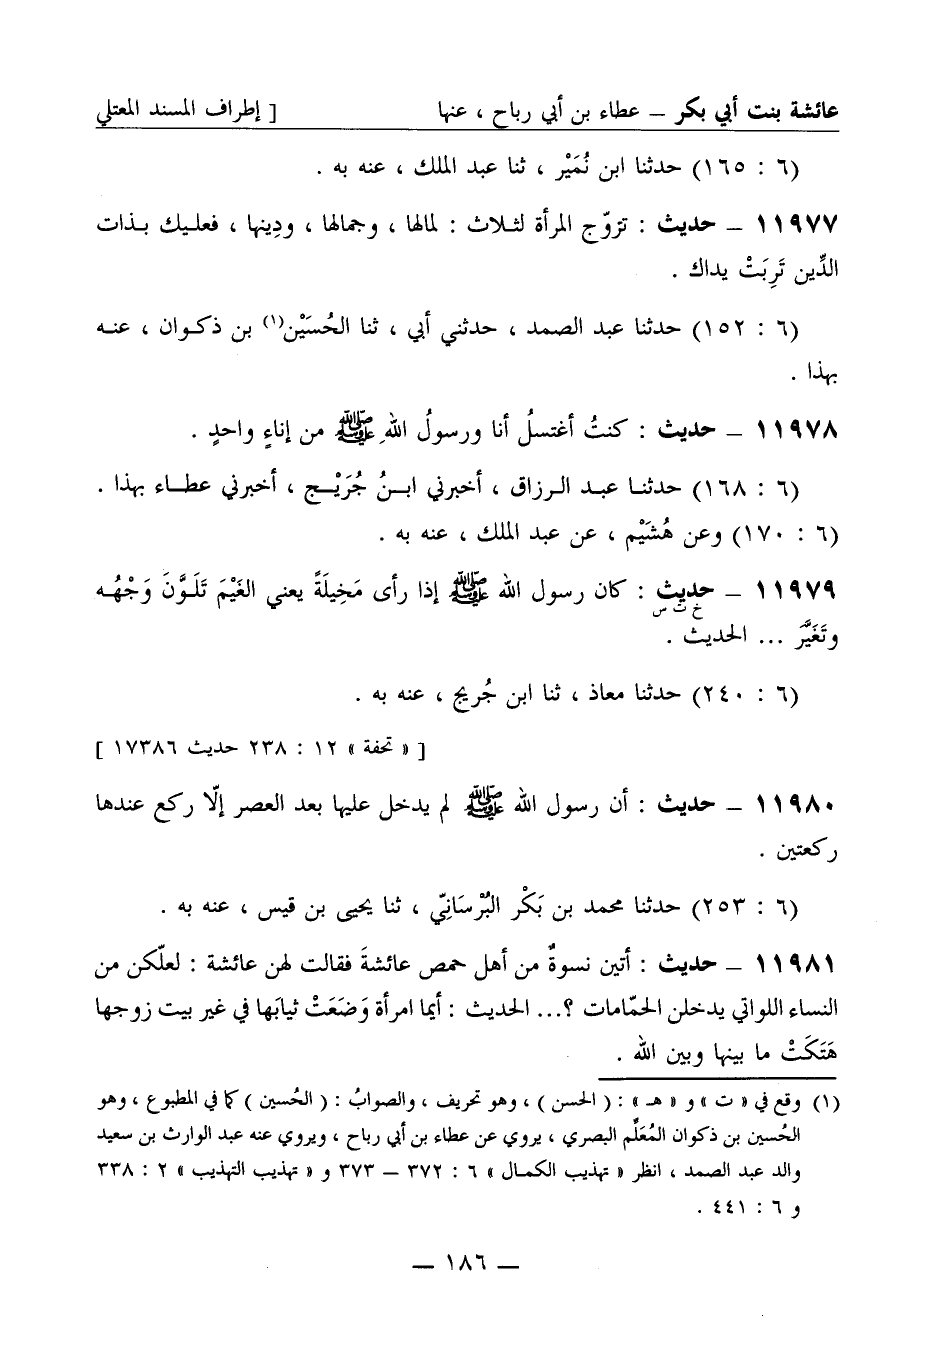 عائشة بنت أبي بكر – عطاء بن أبي رباح ، عنها [ إطراف المسند المعتلي
(٦ : ١٦٥) حدثنا ابن نُمَيْر ، ثنا عبد الملك ، عنه به .
١١٩٧٧ – حديث : تزوّج المرأة لثلاث : لمالها ، وجمالها ، ودِينها ، فعليك بذات
الدِّين تَرِبَتْ يداك .
(٦ : ١٥٢) حدثنا عبد الصمد ، حدثني أبي ، ثنا الحُسَيْن(١) بن ذكوان ، عنه
بهذا .
١١٩٧٨ – حديث : كنتُ أغتسلُ أنا ورسولُ اللهِ ﷺ من إناءٍ واحدٍ .
(٦ : ١٦٨) حدثنا عبد الرزاق ، أخبرني ابنُ جُرَيْج ، أخبرني عطاء بهذا .
(٦ : ١٧٠) وعن هُشَيْم ، عن عبد الملك ، عنه به .
١١٩٧٩ – حديث : كان رسول الله ﷺ إذا رأى مَخِيلَةً يعني الغَيْمَ تَلَوَّنَ وَجْهُه
خ ت س
وتَغَيَّرَ ... الحديث .
(٦ : ٢٤٠) حدثنا معاذ ، ثنا ابن جُريج ، عنه به .
[ « تحفة » ١٢ : ٢٣٨ حديث ١٧٣٨٦ ]
١١٩٨٠ – حديث : أن رسول الله ﷺ لم يدخل عليها بعد العصر إلّا ركع عندها
ركعتين .
(٦ : ٢٥٣) حدثنا محمد بن بَكْر البُرْسَانِيّ ، ثنا يحيى بن قيس ، عنه به .
١١٩٨١ – حديث : أتين نسوةٌ من أهل حمص عائشةَ فقالت لهن عائشة : لعلّكن من
النساء اللواتي يدخلن الحمّامات ؟... الحديث : أيما امرأة وَضَعَتْ ثيابَها في غير بيت زوجها
هَتَكَتْ ما بينها وبين الله .
(١) وقع في « ت » و « هـ » : ( الحسن ) ، وهو تحريف ، والصوابُ : ( الحُسين ) كما في المطبوع ، وهو
الحُسين بن ذكوان المُعَلِّم البصري ، يروي عن عطاء بن أبي رباح ، ويروي عنه عبد الوارث بن سعيد
والد عبد الصمد ، انظر « تهذيب الكمال » ٦ : ٣٧٢ – ٣٧٣ و « تهذيب التهذيب » ٢ : ٣٣٨
و ٦ : ٤٤١ .
– ١٨٦ –